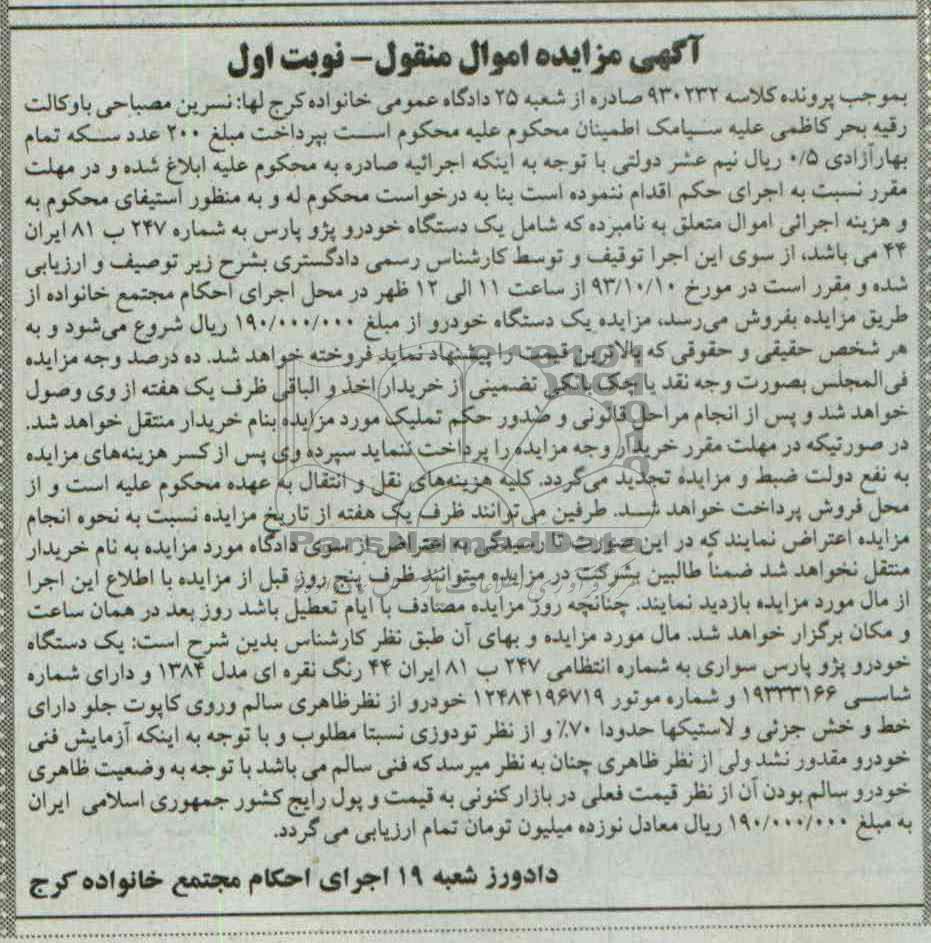 آگهی مزایده اموال منقول - نوبت اول
بموجب پرونده کلاسه ۹۳۰۲۳۲ صادره از شعبه ۲۵ دادگاه عمومی خانواده کرج لها: نسرین مصباحی باوکالت
رقیه بحر کاظمی علیه سیامک اطمینان محکوم علیه محکوم است بپرداخت مبلغ ۲۰۰ عدد سکه تمام
بهارآزادی ۰/۵ ریال نیم عشر دولتی با توجه به اینکه اجرائیه صادره به محکوم علیه ابلاغ شده و در مهلت
مقرر نسبت به اجرای حکم اقدام ننموده است بنا به درخواست محکوم له و به منظور استیفای محکوم به
و هزینه اجرائی اموال متعلق به نامبرده که شامل یک دستگاه خودرو پژو پارس به شماره ۲۴۷ ب ۸۱ ایران
۴۴ می باشد، از سوی این اجرا توقیف و توسط کارشناس رسمی دادگستری بشرح زیر توصیف و ارزیابی
شده و مقرر است در مورخ ۹۳/۱۰/۱۰ از ساعت ۱۱ الی ۱۲ ظهر در محل اجرای احکام مجتمع خانواده از
طریق مزایده بفروش می‌رسد، مزایده یک دستگاه خودرو از مبلغ ۱۹۰/۰۰۰/۰۰۰ ریال شروع می‌شود و به
هر شخص حقیقی و حقوقی که بالاترین قیمت را پیشنهاد نماید فروخته خواهد شد. ده درصد وجه مزایده
فی‌المجلس بصورت وجه نقد یا چک بانکی تضمینی از خریدار اخذ و الباقی ظرف یک هفته از وی وصول
خواهد شد و پس از انجام مراحل قانونی و صدور حکم تملیک مورد مزایده بنام خریدار منتقل خواهد شد.
در صورتیکه در مهلت مقرر خریدار وجه مزایده را پرداخت ننماید سپرده وی پس از کسر هزینه‌های مزایده
به نفع دولت ضبط و مزایده تجدید می‌گردد. کلیه هزینه‌های نقل و انتقال به عهده محکوم علیه است و از
محل فروش پرداخت خواهد شد. طرفین می‌توانند ظرف یک هفته از تاریخ مزایده نسبت به نحوه انجام
مزایده اعتراض نمایند که در این صورت تا رسیدگی به اعتراض از سوی دادگاه مورد مزایده به نام خریدار
منتقل نخواهد شد ضمناً طالبین بشرکت در مزایده میتوانند ظرف پنج روز قبل از مزایده با اطلاع این اجرا
از مال مورد مزایده بازدید نمایند. چنانچه روز مزایده مصادف با ایام تعطیل باشد روز بعد در همان ساعت
و مکان برگزار خواهد شد. مال مورد مزایده و بهای آن طبق نظر کارشناس بدین شرح است: یک دستگاه
خودرو پژو پارس سواری به شماره انتظامی ۲۴۷ ب ۸۱ ایران ۴۴ رنگ نقره ای مدل ۱۳۸۴ و دارای شماره
شاسی ۱۹۳۳۳۱۶۶ و شماره موتور ۱۲۴۸۴۱۹۶۷۱۹ خودرو از نظرظاهری سالم وروی کاپوت جلو دارای
خط و خش جزئی و لاستیکها حدودا ۷۰٪ و از نظر تودوزی نسبتا مطلوب و با توجه به اینکه آزمایش فنی
خودرو مقدور نشد ولی از نظر ظاهری چنان به نظر میرسد که فنی سالم می باشد با توجه به وضعیت ظاهری
خودرو سالم بودن آن از نظر قیمت فعلی در بازار کنونی به قیمت و پول رایج کشور جمهوری اسلامی ایران
به مبلغ ۱۹۰/۰۰۰/۰۰۰ ریال معادل نوزده میلیون تومان تمام ارزیابی می گردد.
دادورز شعبه ۱۹ اجرای احکام مجتمع خانواده کرج
ParsNamadData